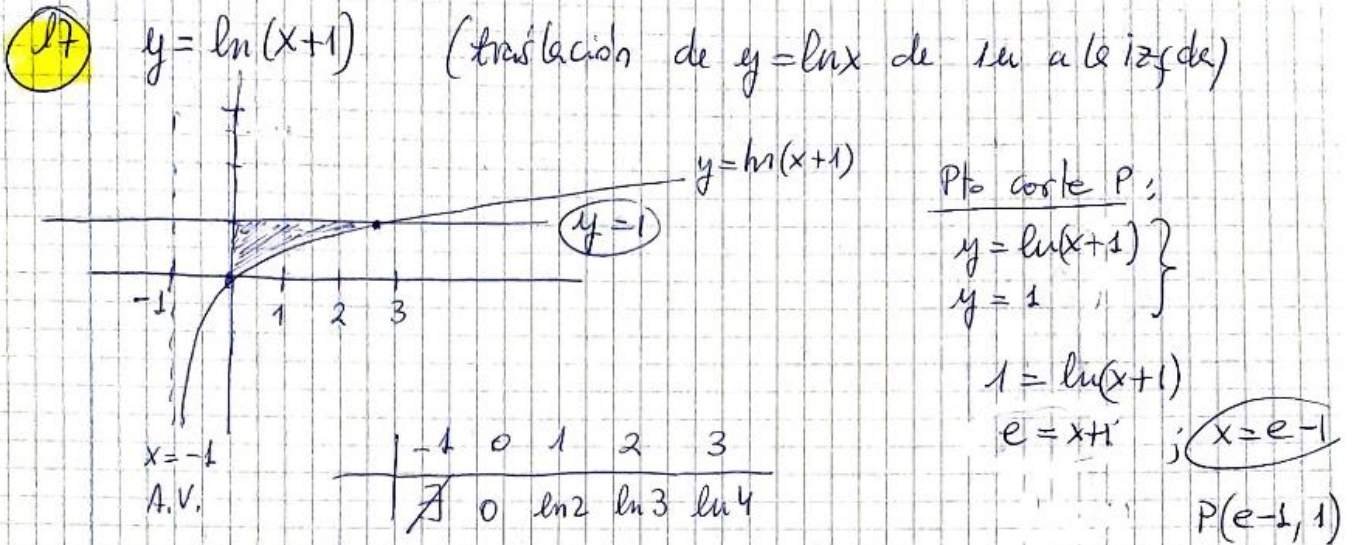 17 y = ln(x+1) (traslación de y = lnx de 1u a la izqda)
y = ln(x+1)
y = 1
-1 1 2 3
x = -1
A.V.
-1 0 1 2 3
∄ 0 ln2 ln3 ln4
Pto corte P:
y = ln(x+1) }
y = 1
1 = ln(x+1)
e = x+1 ; x = e-1
P(e-1, 1)